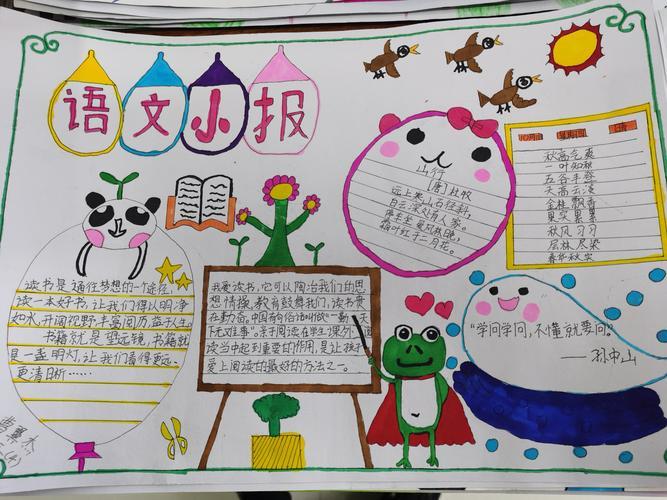 语文小报
山行
【唐】杜牧
远上寒山石径斜,
白云深处有人家。
停车坐爱枫林晚,
霜叶红于二月花。
秋高气爽
一叶知秋
五谷丰登
天高云淡
金桂飘香
果实累累
秋风习习
层林尽染
春华秋实
读书是通往梦想的一个途径,
读一本好书,让我们得以明净
如水,开阔视野,丰富阅历,益于人生。
书籍就是望远镜,书籍就
是一盏明灯,让我们看得更远、
更清晰……
我要读书,它可以陶冶我们的思
想情操,教育鼓舞我们,读书贵
在勤奋,中国有俗话叫做“勤,天
下无难事”。亲子阅读在学生课外阅
读当中起到重要的作用,是让孩子
爱上阅读的最好的方法之一。
“学问学问,不懂就要问。”
——孙中山